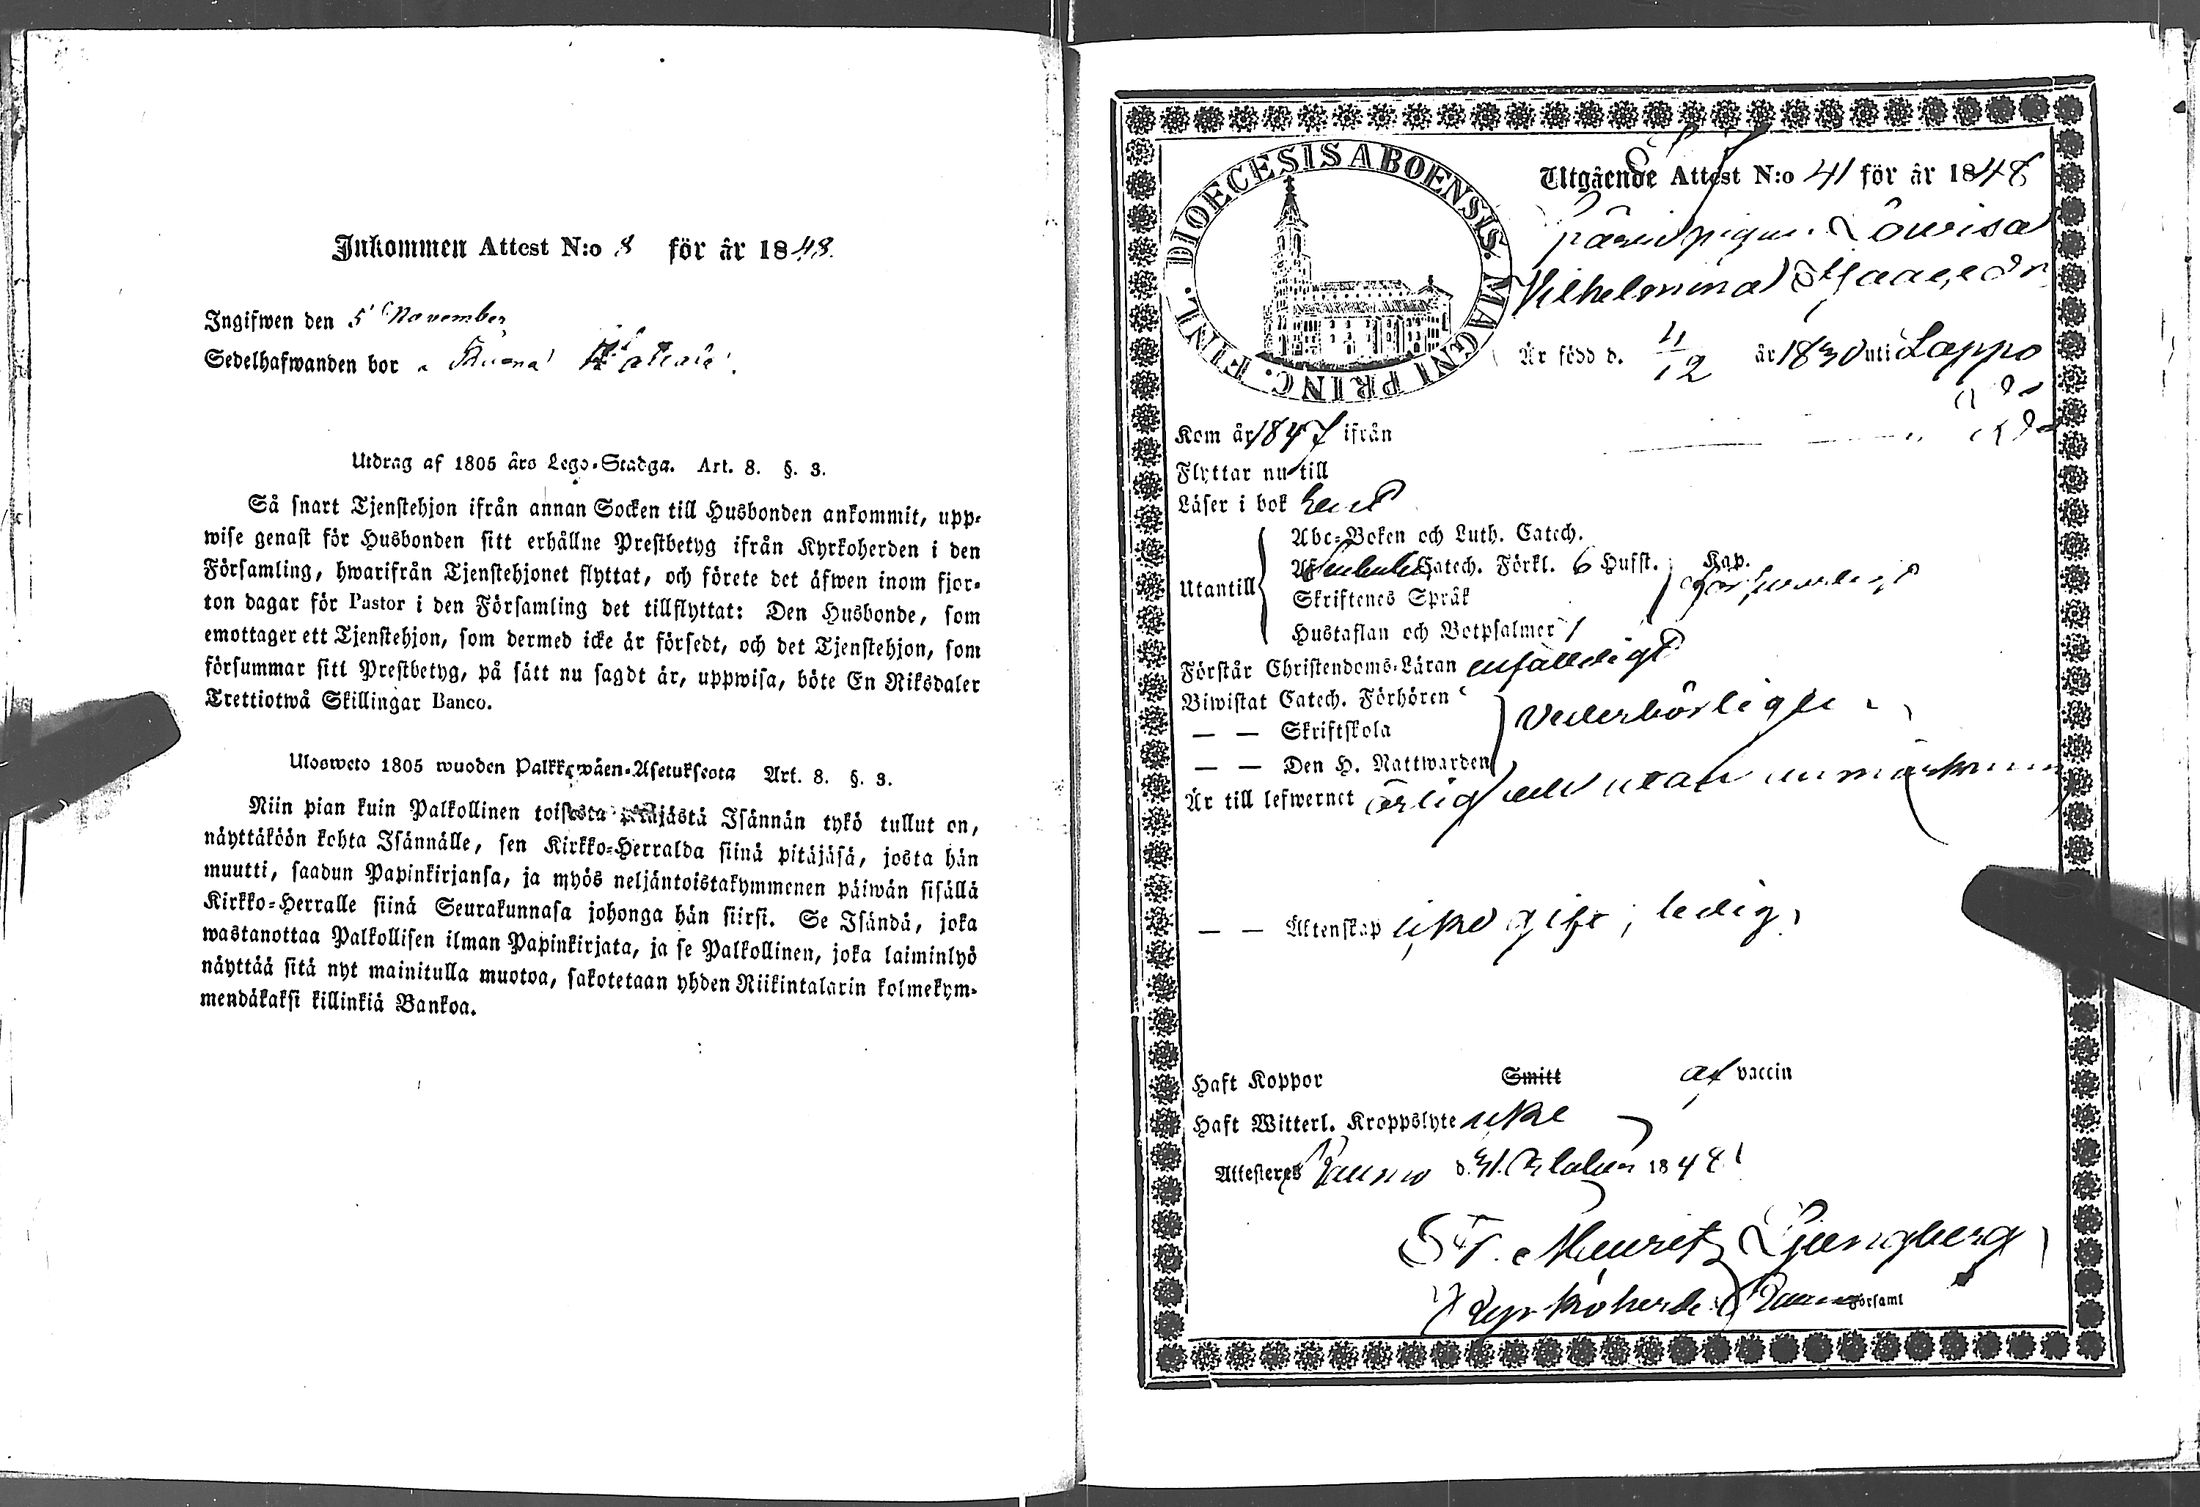 Inkommen Attest N:o 8 för år 1848.
Ingifwen den 5 November
Sedelhafwanden bor
Utdrag af 1805 års Lego-Stadga. Art. 8. §. 3.
Så snart Tjenstehjon ifrån annan Socken till Husbonden ankommit, upp-
wise genast för Husbonden sitt erhållne Prestbetyg ifrån Kyrkoherden i den
Församling, hwarifrån Tjenstehjonet flyttat, och förete det äfwen inom fjor-
ton dagar för Pastor i den Församling det tillflyttat: Den Husbonde, som
emottager ett Tjenstehjon, som dermed icke är försedt, och det Tjenstehjon, som
försummar sitt Prestbetyg, på sätt nu sagdt är, uppwisa, böte En Riksdaler
Trettiotwå Skillingar Banco.
Ulosweto 1805 wuoden Palkkawäen-Asetuksesta Art. 8. §. 3.
Niin pian kuin Palkollinen toisesta pitäjästä Isännän tykö tullut on,
näyttäköön kohta Isännälle, sen Kirkko-Herralda siinä pitäjäsä, josta hän
muutti, saadun Papinkirjansa, ja myös neljäntoistakymmenen päiwän sisällä
Kirkko-Herralle siinä Seurakunnasa johonga hän siirsi. Se Isändä, joka
wastanottaa Palkollisen ilman Papinkirjata, ja se Palkollinen, joka laiminlyö
näyttää sitä nyt mainitulla muotoa, sakotetaan yhden Riikintalarin kolmekym-
mendäkaksi killinkiä Bankoa.
DIOECESIS ABOENSIS. MAGNI PRINC. FINL.
Utgående Attest N:o 41 för år 1848
pigan Lovisa
Vilhelmina
Är född d. 11/12 år 1830 uti Lappo
Kom år 1847 ifrån
Flyttar nu till
Läser i bok
Utantill
Abc-Boken och Luth. Catech.
Af Catech. Förkl. 6 Hufst. Kap.
Skriftenes Språk försvarligt
Hustaflan och Botpsalmer
Förstår Christendoms-Läran enfaldigt
Biwistat Catech. Förhören
— — Skriftskola vederbörligen
— — Den H. Nattwarden
Är till lefwernet ärlig och utan anmärkning
— — Äktenskap icke gift, ledig
Haft Koppor Smitt af vaccin
Haft Witterl. Kroppslyte icke
Attesteres Raumo d. 31 October 1848
Mauritz Ljungberg
Kyrkoherde i Raumo Församl